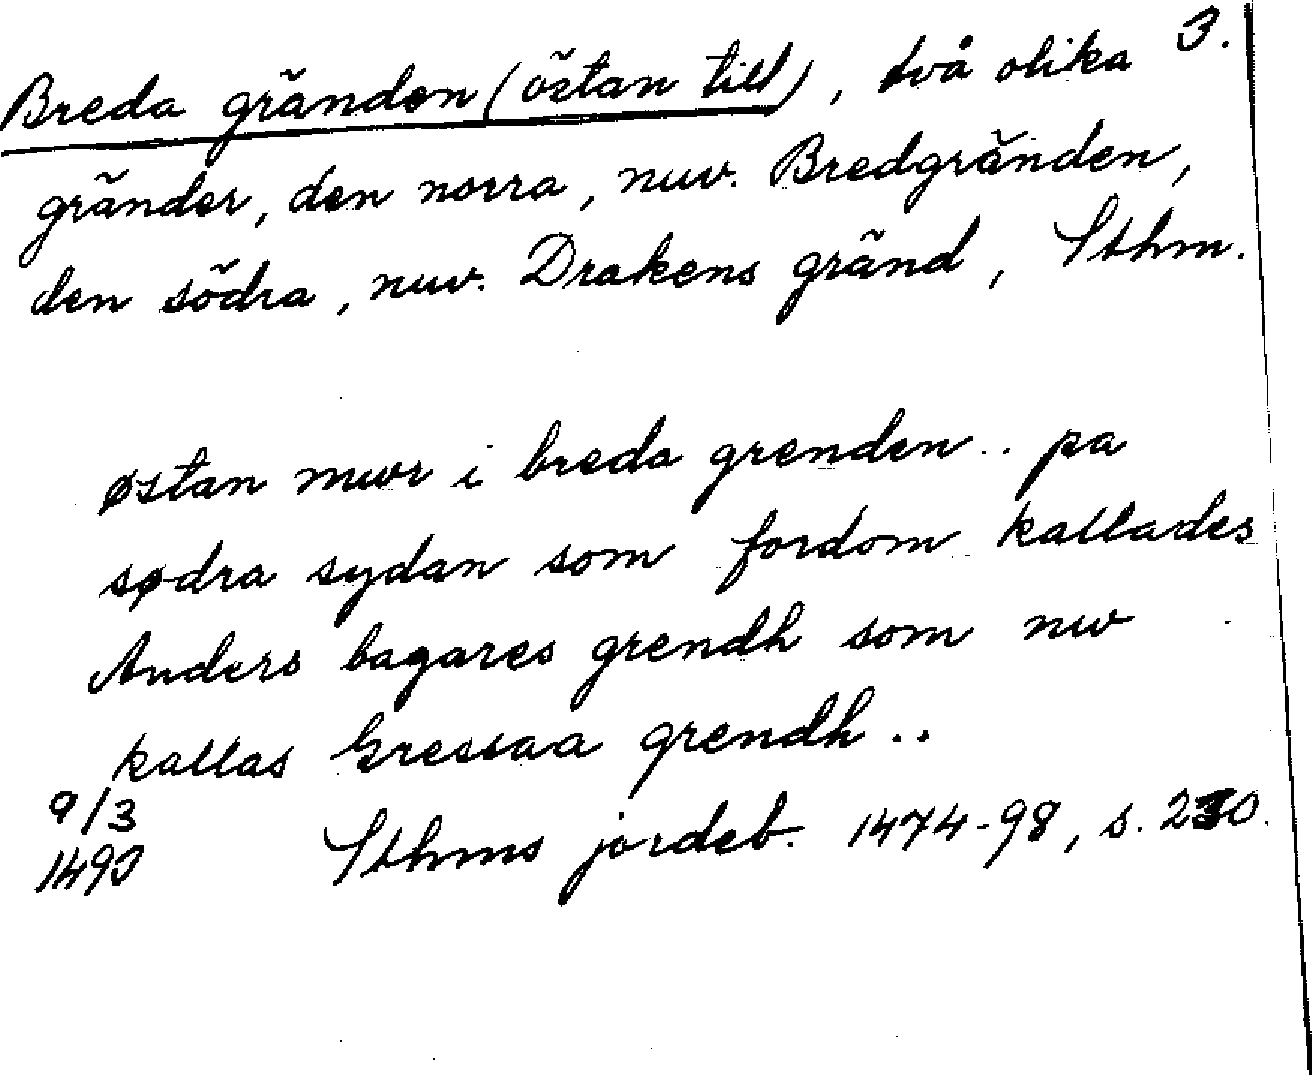 3.
Breda gränden (östan till), två olika
gränder, den norra, nuv. Bredgränden,
den södra, nuv. Drakens gränd, Sthm.
østan mwr i breda grenden .. pa
sødra sydan som fordom kallades
Anders bagares grendh som nw
kallas Gressaa grendh ..
9/3
1493
Sthms jordeb. 1474-98, s. 230.